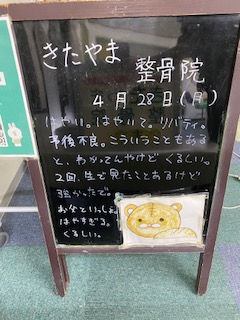 きたやま
整骨院
4月28日(月)
はやい。はやいて。リバティ。
予後不良。こういうこともある
と、わかってんやけど くるしい。
2回、生で見たことあるけど
強かったで。
お父といっしょ。
はやすぎる。
くるしい。